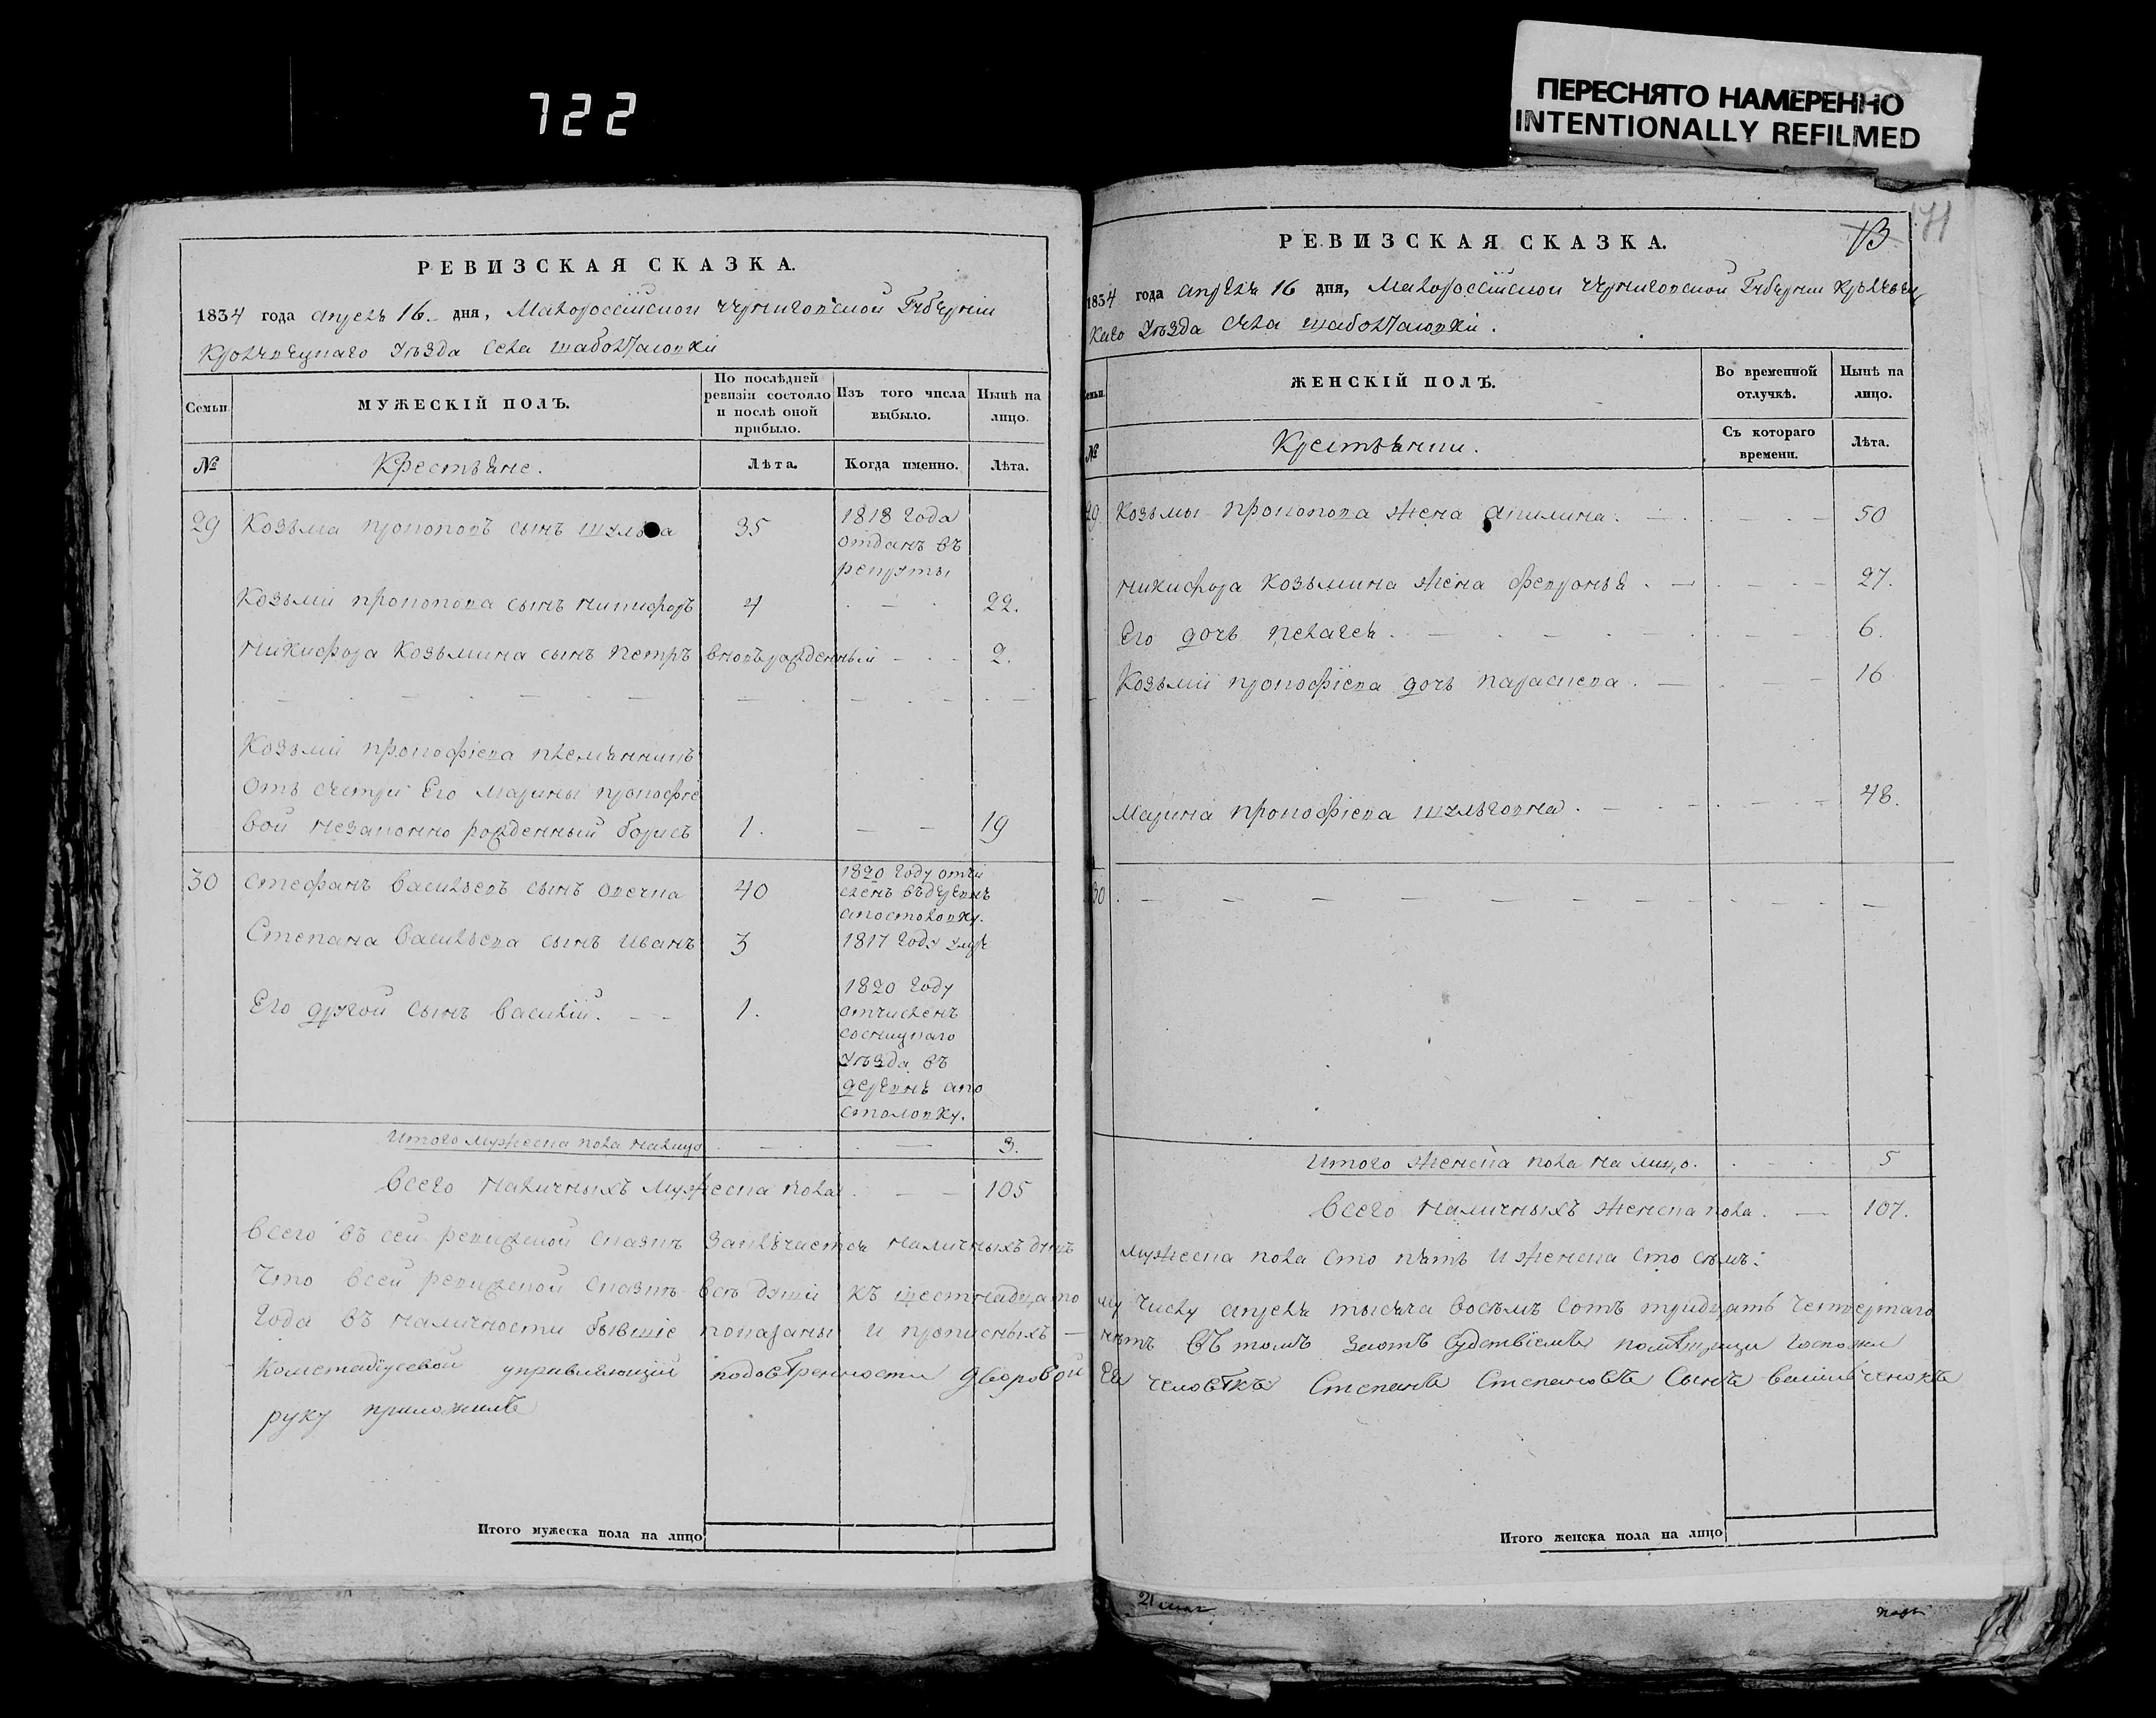 722
ПЕРЕСНЯТО НАМЕРЕННО
INTENTIONALLY REFILMED
РЕВИЗСКАЯ СКАЗКА.
1834 года апреля 16. дня, Малороссійской Черниговской Губерніи
Кролевецкаго уѣзда села
Семьи
МУЖЕСКІЙ ПОЛЪ.
По послѣдней ревизіи состояло и послѣ оной прибыло.
Изъ того числа выбыло.
Нынѣ на лицо.
№
Крестьяне.
Лѣта.
Когда именно.
Лѣта.
29 Козьма прокоповъ сынъ 35 1818 года
отданъ въ
рекруты
Козьмы прокопова сынъ никифоръ 4 22.
никифора Козьмина сынъ петръ вновьрожденный 2.
Козьмы прокофіева племянникъ
отъ сестры Его Марины прокофіе
вой незаконно рожденный борисъ 1. 19
30 стефанъ васильевъ сынъ 40 1820 году отчи
сленъ въ деревнь
апостоловку.
Степана васильева сынъ иванъ 3 1817 году умре
Его другой сынъ василій. 1. 1820 году
отчисленъ
сосницкаго
уѣзда въ
деревнь апо
столовку.
Итого мужеска пола налицо 3.
всего наличныхъ мужеска пола 105
всего въ сей ревижской сказкѣ заключается наличныхъ душъ
Что в сей ревижской сказкѣ всѣ души къ шестнадцато
года въ наличности бывшіе показаны и прописныхъ
управляющій дворовой
руку приложилъ
Итого мужеска пола на лицо
13
171
РЕВИЗСКАЯ СКАЗКА.
1834 года апреля 16 дня, Малороссійской Черниговской Губерніи Кролевец
каго уѣзда села
Семьи.
ЖЕНСКІЙ ПОЛЪ.
Во временной отлучкѣ.
Нынѣ на лицо.
№
Крестьянки.
Съ котораго времени.
Лѣта.
29 Козьмы прокопова жена акилина. 50
никифора козьмина жена февронья 27.
Его дочь пелагея. 6.
Козьмы прокофіева дочь параскева. 16
Марина прокофіева 48.
30
Итого женска пола на лицо. 5
всего наличныхъ женска пола. 107.
мужеска пола сто пять и женска сто семь:
му числу апреля тысяча восемь сотъ тридцать четвертаго
нѣтъ въ томъ помѣщицы госпожи
Ея человѣкъ Степанъ Степановъ Сынъ
Итого женска пола на лицо
21